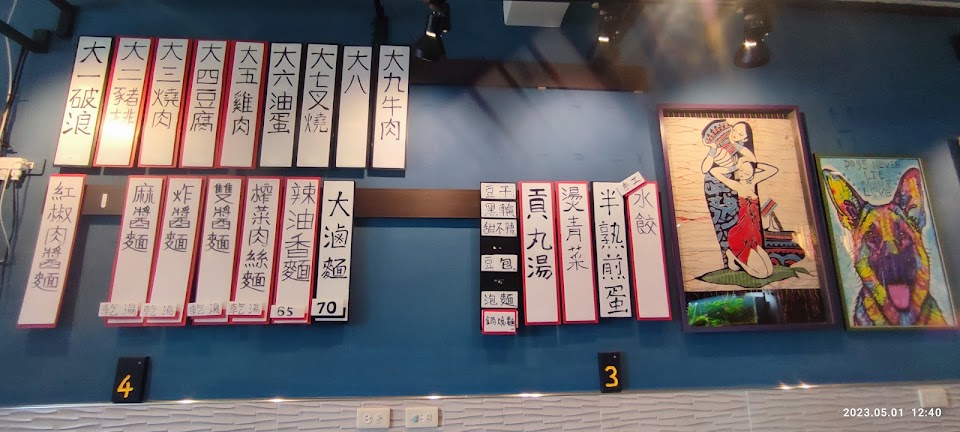 大一破浪
大二豬排
大三燒肉
大四豆腐
大五雞肉
大六油蛋
大七叉燒
大八
大九牛肉
紅椒肉醬麵
麻醬麵
乾湯
炸醬麵
乾湯
雙醬麵
乾湯
榨菜肉絲麵
乾湯
辣油香麵
65
大滷麵
70
豆干
黑輪
甜不辣
豆包
泡麵
鍋燒麵
貢丸湯
燙青菜
半熟煎蛋
水餃
4
3
2023.05.01 12:40